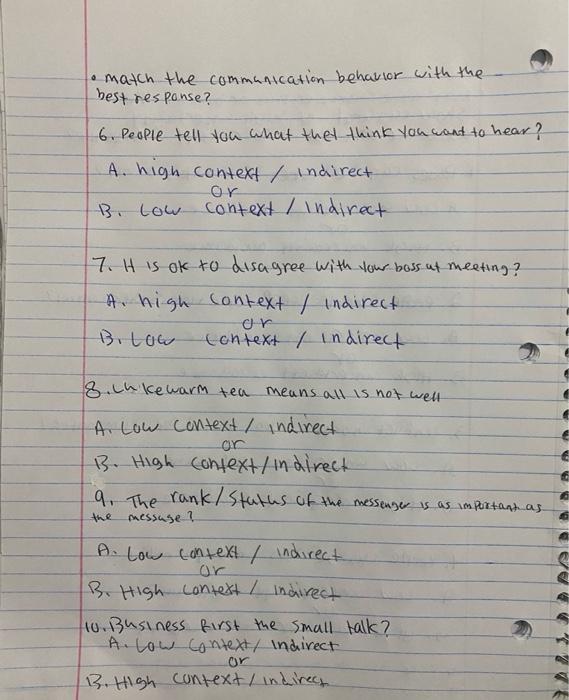 • match the communication behavior with the
best response?
6. People tell you what thet think you want to hear?
A. high context / indirect
or
B. Low context / indirect
7. It is ok to disagree with your boss at meeting?
A. high context / indirect
or
B. Low context / indirect
8. Lukewarm tea means all is not well
A. Low context / indirect
or
B. High context / indirect
9. The rank/status of the messenger is as important as
the message?
A. Low context / indirect
or
B. High context / indirect
10. Business first the small talk?
A. Low context / indirect
or
B. High context / indirect